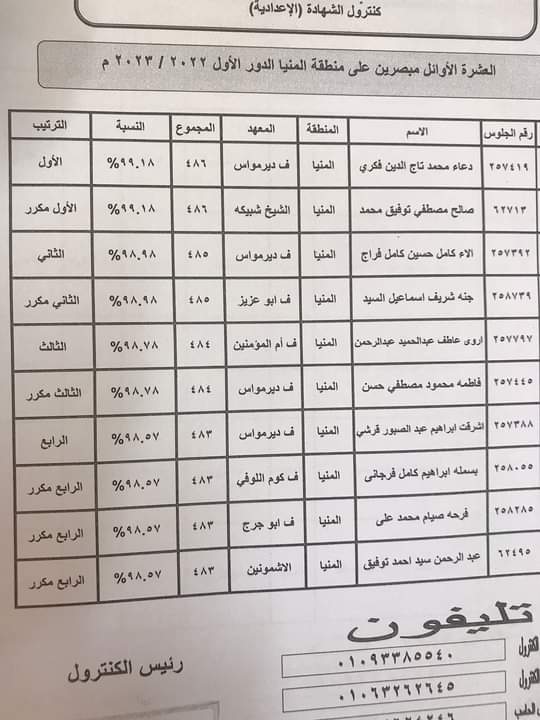 كنترول الشهادة (الإعدادية)
العشرة الأوائل مبصرين على منطقة المنيا الدور الأول ٢٠٢٢ / ٢٠٢٣ م
رقم الجلوس الاسم المنطقة المعهد المجموع النسبة الترتيب
٢٥٧٤١٩ دعاء محمد تاج الدين فكري المنيا ف ديرمواس ٤٨٦ ٩٩.١٨% الأول
٦٢٧١٣ صالح مصطفي توفيق محمد المنيا الشيخ شبيكه ٤٨٦ ٩٩.١٨% الأول مكرر
٢٥٧٣٩٢ الاء كامل حسين كامل فراج المنيا ف ديرمواس ٤٨٥ ٩٨.٩٨% الثاني
٢٥٨٧٣٩ جنه شريف اسماعيل السيد المنيا ف ابو عزيز ٤٨٥ ٩٨.٩٨% الثاني مكرر
٢٥٧٧٩٧ اروى عاطف عبدالحميد عبدالرحمن المنيا ف أم المؤمنين ٤٨٤ ٩٨.٧٨% الثالث
٢٥٧٤٤٥ فاطمه محمود مصطفي حسن المنيا ف ديرمواس ٤٨٤ ٩٨.٧٨% الثالث مكرر
٢٥٧٣٨٨ اشرقت ابراهيم عبد الصبور قرشي المنيا ف ديرمواس ٤٨٣ ٩٨.٥٧% الرابع
٢٥٨٠٥٥ بسمله ابراهيم كامل فرجانى المنيا ف كوم اللوفي ٤٨٣ ٩٨.٥٧% الرابع مكرر
٢٥٨٢٨٥ فرحه صيام محمد على المنيا ف ابو جرج ٤٨٣ ٩٨.٥٧% الرابع مكرر
٦٢٤٩٥ عبد الرحمن سيد احمد توفيق المنيا الاشمونين ٤٨٣ ٩٨.٥٧% الرابع مكرر
تليفون
رئيس الكنترول
الكنترول ٠١٠٩٣٣٨٥٥٤٠
الكنترول ٠١٠٦٣٢٦٢٦٤٥